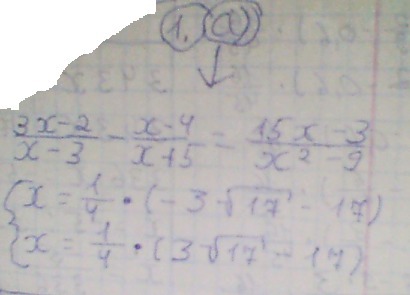 1. а)
(3x-2)/(x-3) - (x-4)/(x+5) = (15x-3)/(x²-9)
{ x = 1/4 · (-3√17 - 17)
{ x = 1/4 · (3√17 - 17)